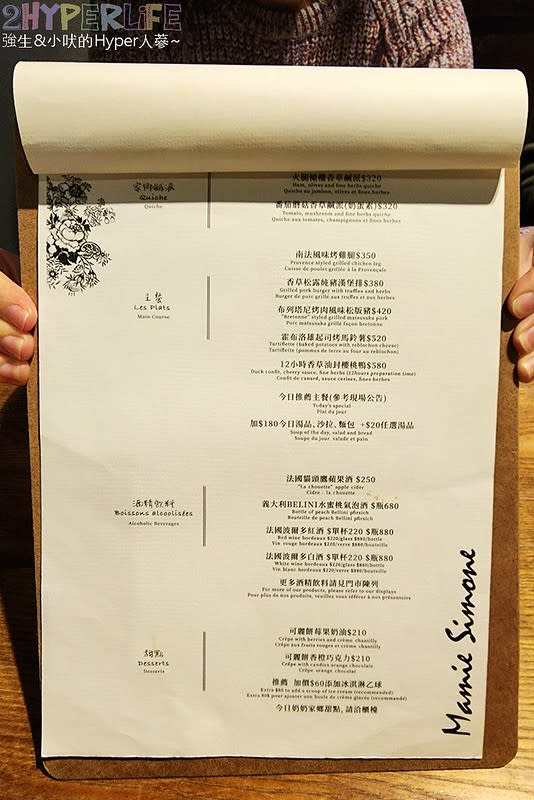 2HYPERLIFE
強生&小吠的Hyper人蔘~
家鄉鹹派
Quiche
Quiche
火腿橄欖香草鹹派$320
Ham, olives and fine herbs quiche
Quiche au jambon, olives et fines herbes
番茄蘑菇香草鹹派(奶蛋素)$320
Tomato, mushroom and fine herbs quiche
Quiche aux tomates, champignons et fines herbes
主餐
Les Plats
Main Course
南法風味烤雞腿$350
Provence styled grilled chicken leg
Cuisse de poulet grillée à la Provençale
香草松露純豬漢堡排$380
Grilled pork burger with truffles and herbs
Burger de porc grillé aux truffes et aux herbes
布列塔尼烤肉風味松阪豬$420
"Bretonne" styled grilled matsusaka pork
Porc matsusaka grillé façon bretonne
霍布洛雄起司烤馬鈴薯$520
Tartiflette (baked potatoes with reblochon cheese)
Tartiflette (pommes de terre au four au reblochon)
12小時香草油封櫻桃鴨$580
Duck confit, cherry sauce, fine herbs (12hours preparation time)
Confit de canard, sauce cerises, fines herbes
今日推薦主餐(參考現場公告)
Today's special
Plat du jour
加$180今日湯品、沙拉、麵包 +$20任選湯品
Soup of the day, salad and bread
Soupe du jour salade et pain
酒精飲料
Boissons alcoolisées
Alcoholic Beverages
法國貓頭鷹蘋果酒 $250
"La chouette" apple cider
Cidre - la chouette
義大利BELINI水蜜桃氣泡酒 $瓶680
Bottle of peach Bellini pfirsich
Bouteille de peach Bellini pfirsich
法國波爾多紅酒 $單杯220 $瓶880
Red wine bordeaux $220/glass $880/bottle
Vin rouge bordeaux $220/verre $880/bouteille
法國波爾多白酒 $單杯220 $瓶880
White wine bordeaux $220/glass $880/bottle
Vin blanc bordeaux $220/verre $880/bouteille
更多酒精飲料請見門市陳列
For more of our products, please refer to our displays
Pour plus de nos produits, veuillez vous référer à nos présentoirs
甜點
Desserts
Desserts
可麗餅莓果奶油$210
Crêpe with berries and crème chantilly
Crêpe aux fruits rouges et crème chantilly
可麗餅香橙巧克力$210
Crêpe with candies orange chocolate
Crêpe orange chocolat
推薦 加價$60添加冰淇淋乙球
Extra $60 to add a scoop of ice cream (recommended)
Extra 60$ pour ajouter une boule de crème glacée (recommandé)
今日奶奶家鄉甜點，請洽櫃檯
Mamie Simone